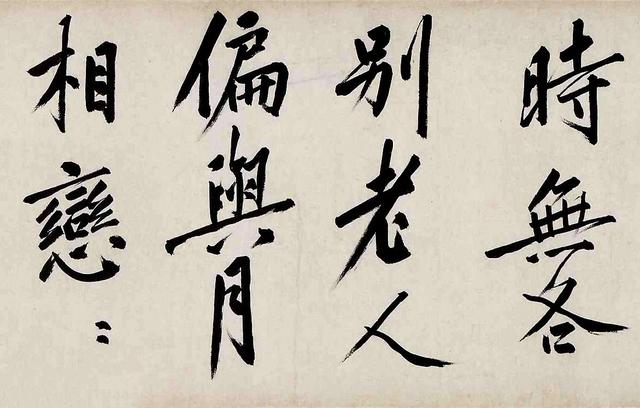 時無各
別老人
偏與月
相戀〻